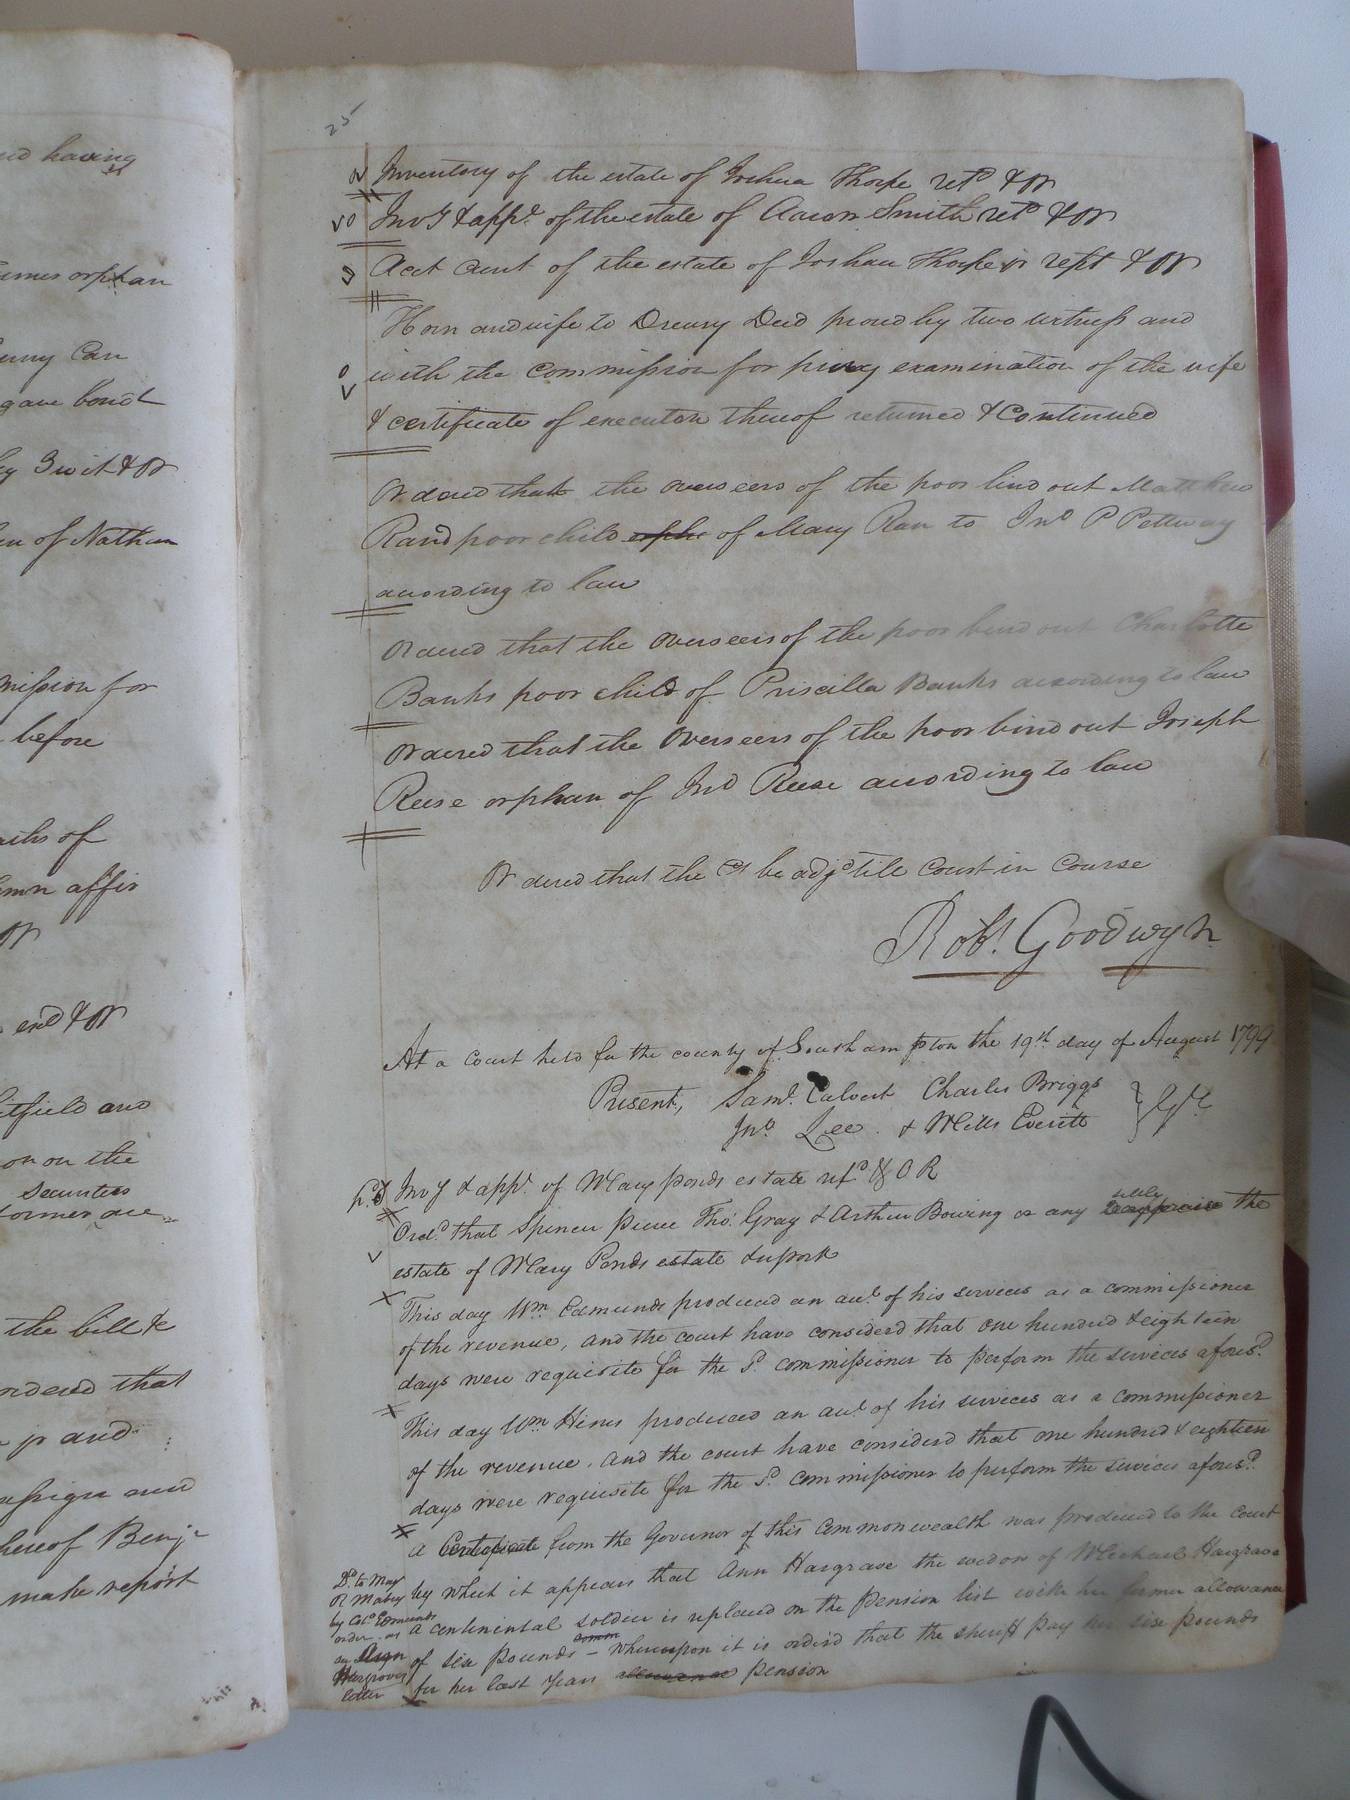 and having
James orphan
gave bond
by 3 wit & OR
of Nathan
mission for
before
of
affir
OR
& OR
and
on on the
Securities
former
the bill &c
ordered that
jr and
assign and
thereof Benj-
make report
25
Inventory of the estate of Joshua Thorpe ret.d & OR
Inv.y & app.t of the estate of Aaron Smith ret.d & OR
Acct Curt of the estate of Joshau Thorpe jr rept & OR
Horn and wife to Drewry Deed proud by two witness and
with the Commission for privy examination of the wife
& certificate of execution thereof returned & Continued
Ordered that the overseers of the poor bind out Matthew
Rand poor child orpha of Mary Ran to Jn.o P Pettway
acording to law
Ordered that the Overseers of the poor bind out Charlotte
Banks poor child of Priscilla Banks acording to law
Ordered that the Overseers of the poor bind out Joseph
Reese orphan of Jno Reese acording to law
Ordered that the Ct be adj.d till Court in Course
Rob.t Goodwyn
At a Court held for the county of Southampton the 19.th day of August 1799
Present, Sam.l Calvert Charles Briggs
Jn.o Lee & Mills Everitt
Inv.y & app.t of Mary Ponds estate ret.d & O R
Ord.d that Spencer Pierce Tho.s Gray & Arthur Bowing or any reappraise the
estate of Mary Ponds estate & report
This day W.m Edmunds produced an au.t of his services as a commissioner
of the revenue, and the court have considerd that one hundred & eighteen
days were requisite for the s.d commissioner to perform the services afores.d
This day W.m Hines produced an au.t of his services as a commissioner
of the revenue, and the court have considerd that one hundred & eighteen
days were requisite for the s.d commissioner to perform the services afores.d
A Certificate from the Governor of this Commonwealth was produced to the Court
by which it appears that Ann Hargrave the widow of Michael Hargrave
a continental soldier is replaced on the Pension list with her former allowance
of six pounds – Whereupon it is orderd that the sheriff pay her six pounds
for her last years allowance pension
D.d to May
R Mabry
by Col.o Edmunds
order as
Hargroves
letter